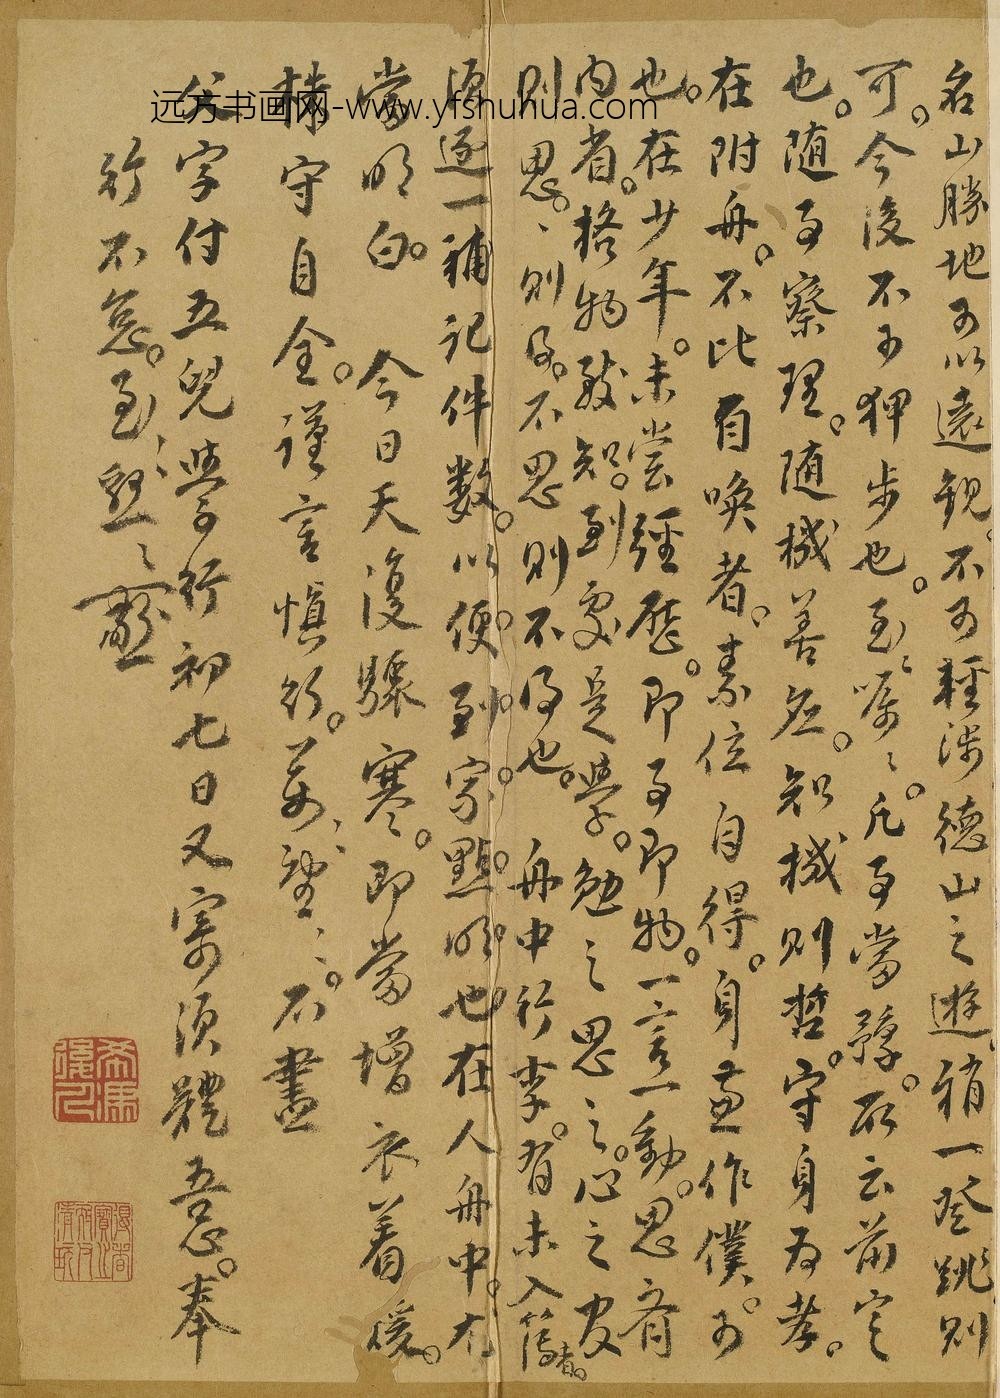 名山勝地可以遠觀。不可輕涉德山之遊。稍一登跳則
可。今後不可狎步也。至、囑、。凡事當豫。所云前定
也。随事察理。随機善應。知機則哲。守身為孝。
在附舟。不比自喚者。素位自得。身兼作僕。可
也。在少年。未嘗經歷。即事即物。一言一動。思齊
内省。格物致知。到處是學。勉之思之。心之官
則思。、則得。不思則不得也。舟中行李。有未入簿者。
須逐一補記件數。以便。到家。點明也。在人舟中。尤
當明白。今日天復驟寒。即當增衣着暖。
保守自全。謹言慎行。萬、望、。不盡
父字付五兒學行初七日又寄須體吾意。奉
行不怠。至、
远方书画网-www.yfshuhua.com